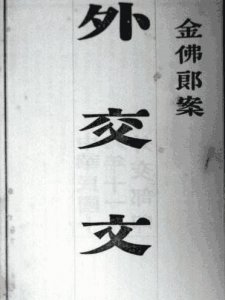 金佛郎案
外交文